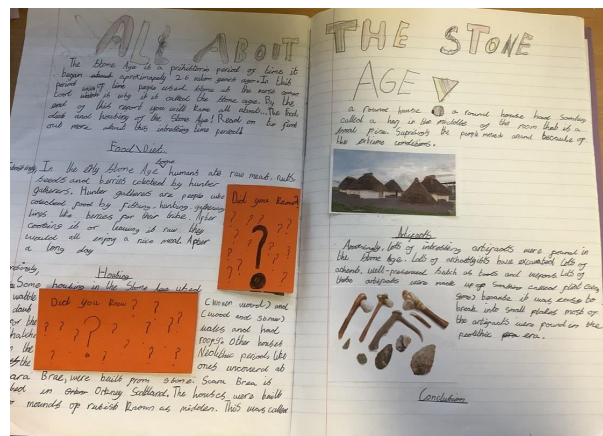 ALL ABOUT THE STONE AGE
The Stone Age is a prehistoric period of time it
began about aproximately 2.6 million years ago. In this
period of time people used stone as the
tool which is why it is called the stone age. By the
end of this report you will know all about... The food,
diet and housing of the Stone Age! Read on to find
out more about this intresting time period!
Food/Diet
In the Stone Age humans ate raw meat, nuts
seeds and berries colected by hunter
gatherers. Hunter gatherers are people who
colected food by fishing, hunting, gathering
things like berries for their tribe. After
cooking it or leaving it raw they
would all enjoy a nice meal After
a long day
Did you Know?
Housing
Some housing in the Stone Age used
wattle
daub
Did you Know?
(woven wood) and
walls and had
roofs. Other houses
Neolithic periods like
ones uncovered at
Brae, were built from stone. Scara Brea is
in Orkney Scotland. The houses were built
mounds of rubish known as midden. This was called
a round house a round house had somthing
called a in the middle of the room that is a
small fire. people moved around because of
the extreme conditions.
Artifacts
Amazingly, lots of intresting artifacts were found in
the Stone Age. Lots of archeologists have excavated lots of
well-preserved such as tools and wepons lots of
these artifacts were made up of somthing called flint
because it was easy to
break into small flakes most of
the artifacts were found in the
era.
Conclusion